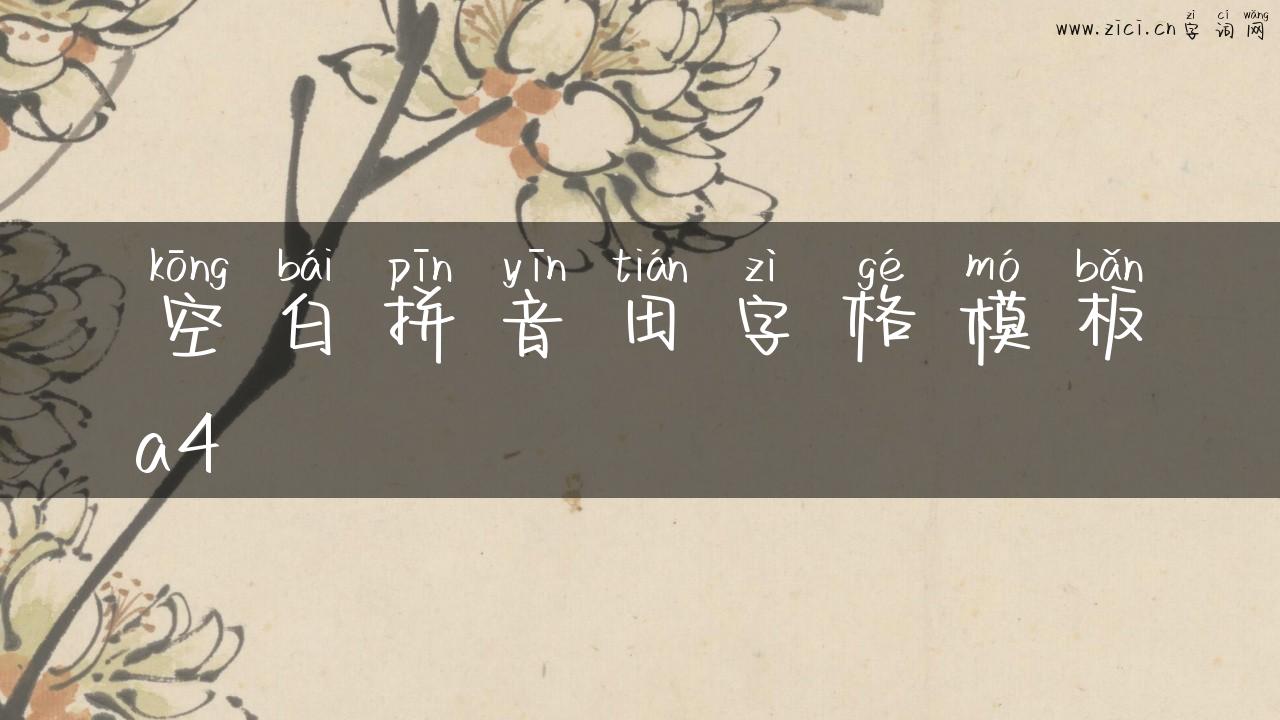 zì cí wǎng
www.zici.cn 字词网
kōng bái pīn yīn tián zì gé mó bǎn
空白拼音田字格模板
a4